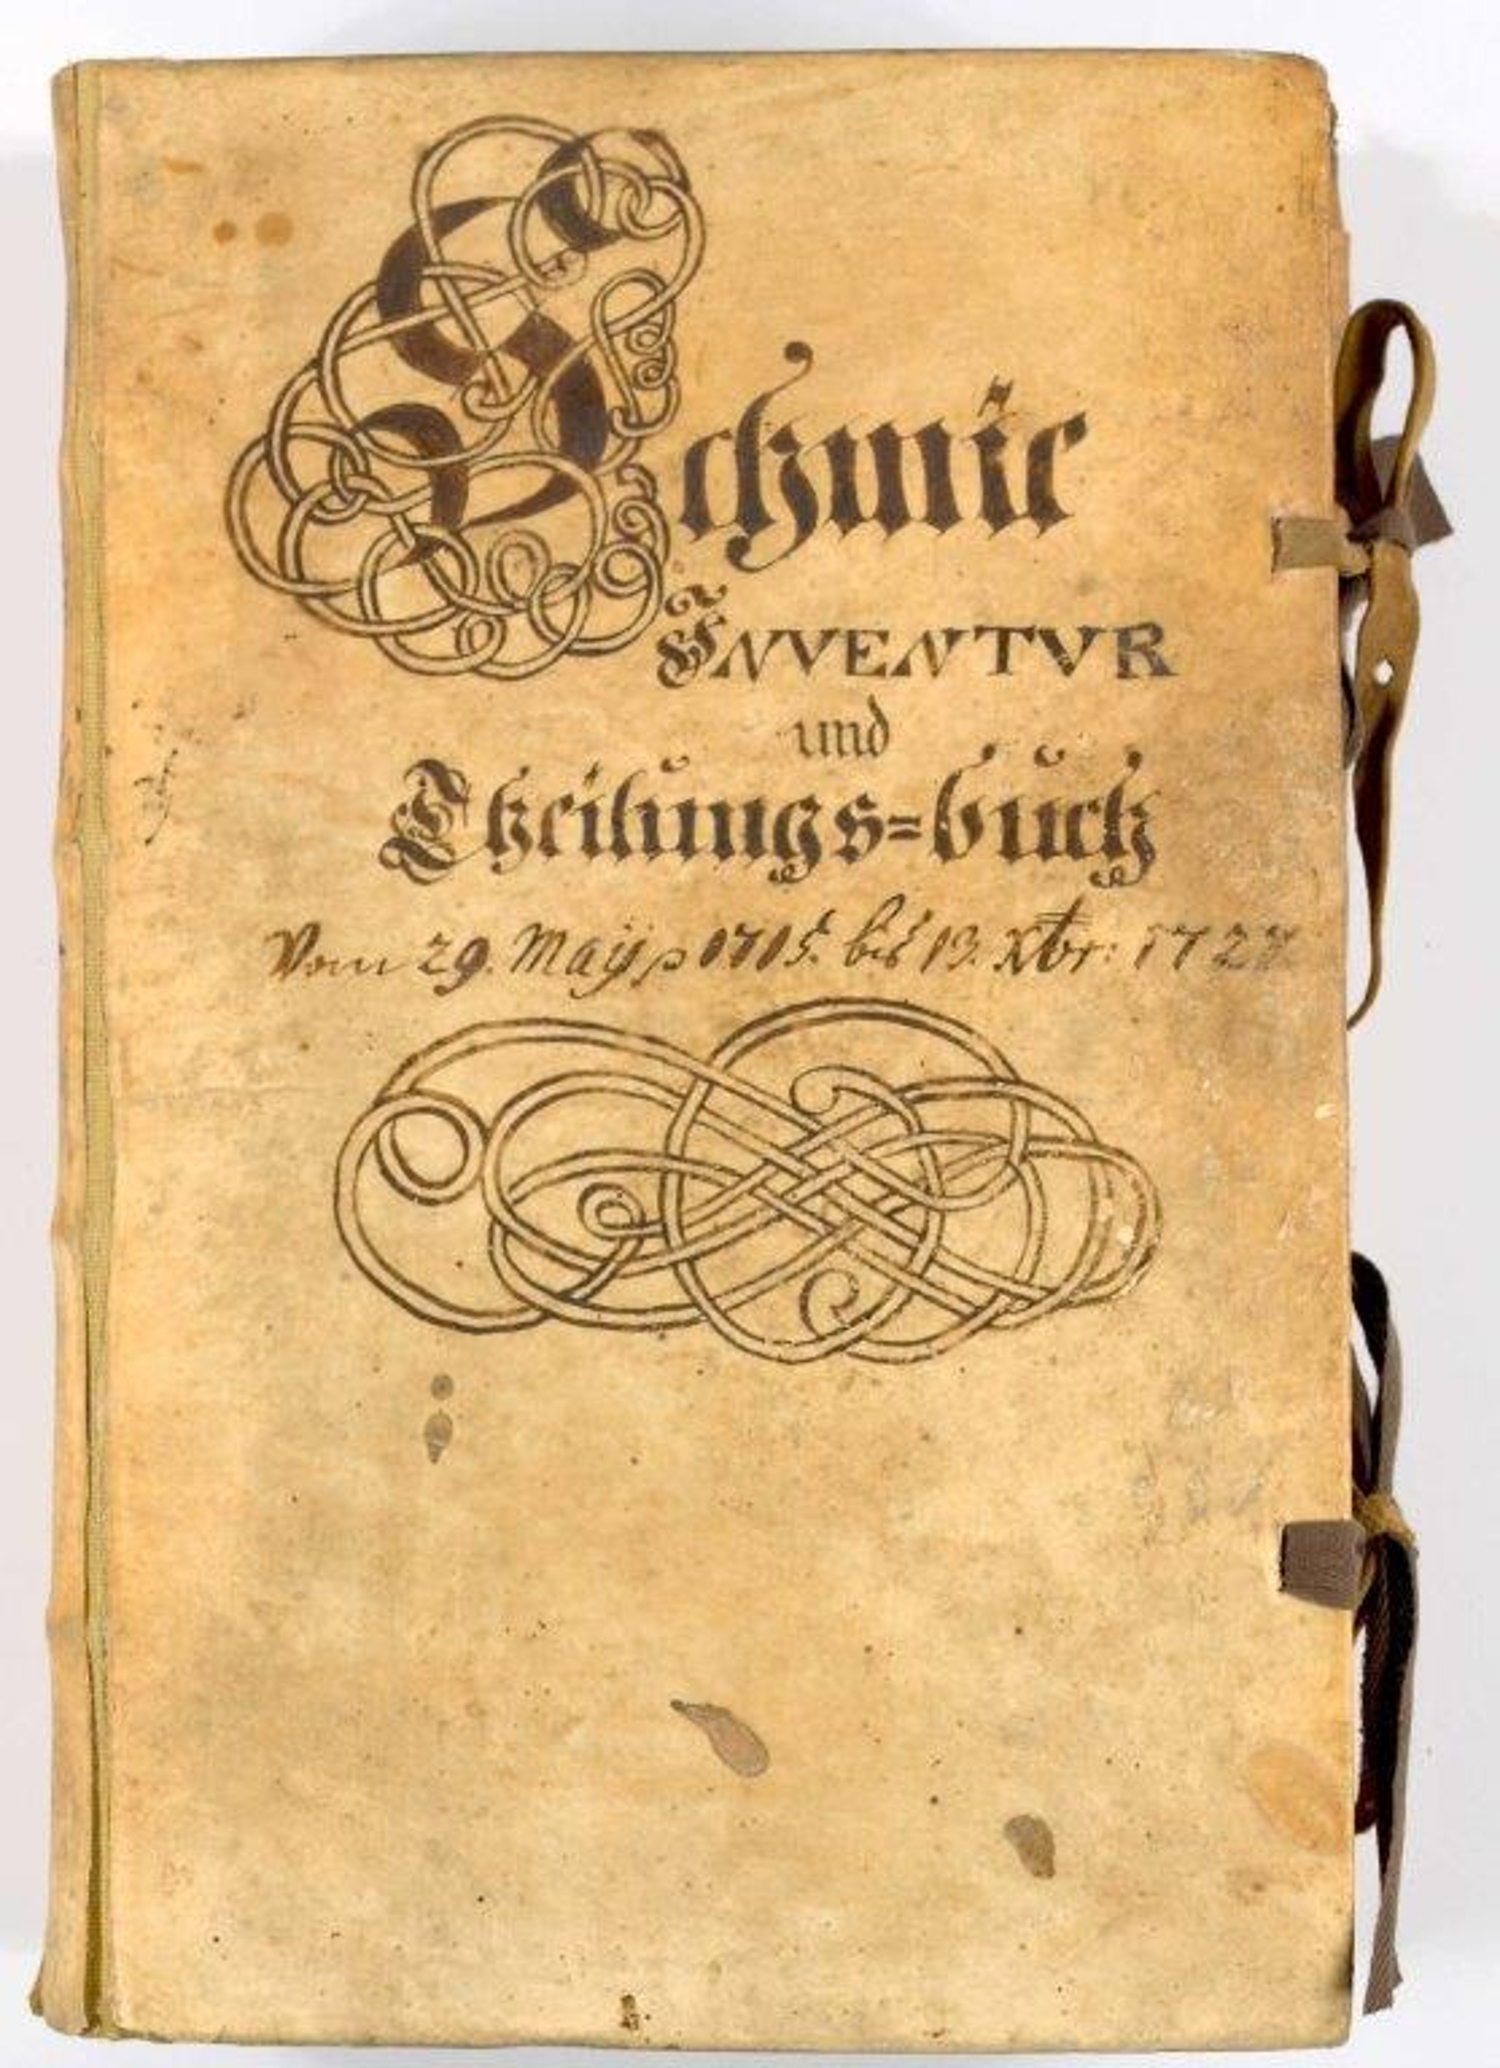 Schmie
INVENTVR
und
Theilungs=buch
Vom 29. Maÿ 1715. bis 13. Xbr: 1727